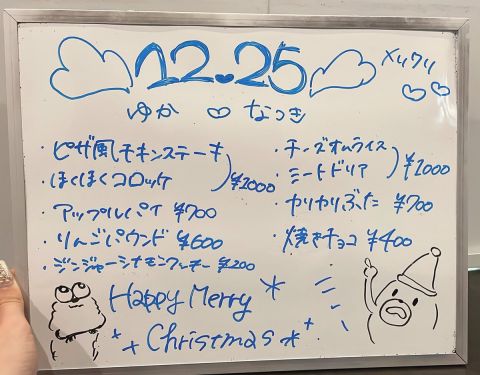 12.25
メリクリ
ゆか ♡ なつき
・ピザ風チキンステーキ
・ほくほくコロッケ
¥1000
・アップルパイ ¥700
・りんごパウンド ¥600
・ジンジャーシナモンクッキー ¥200
・チーズオムライス
・ミートドリア
¥1000
・カリカリぶた ¥700
・焼きチョコ ¥400
Happy Merry
Christmas